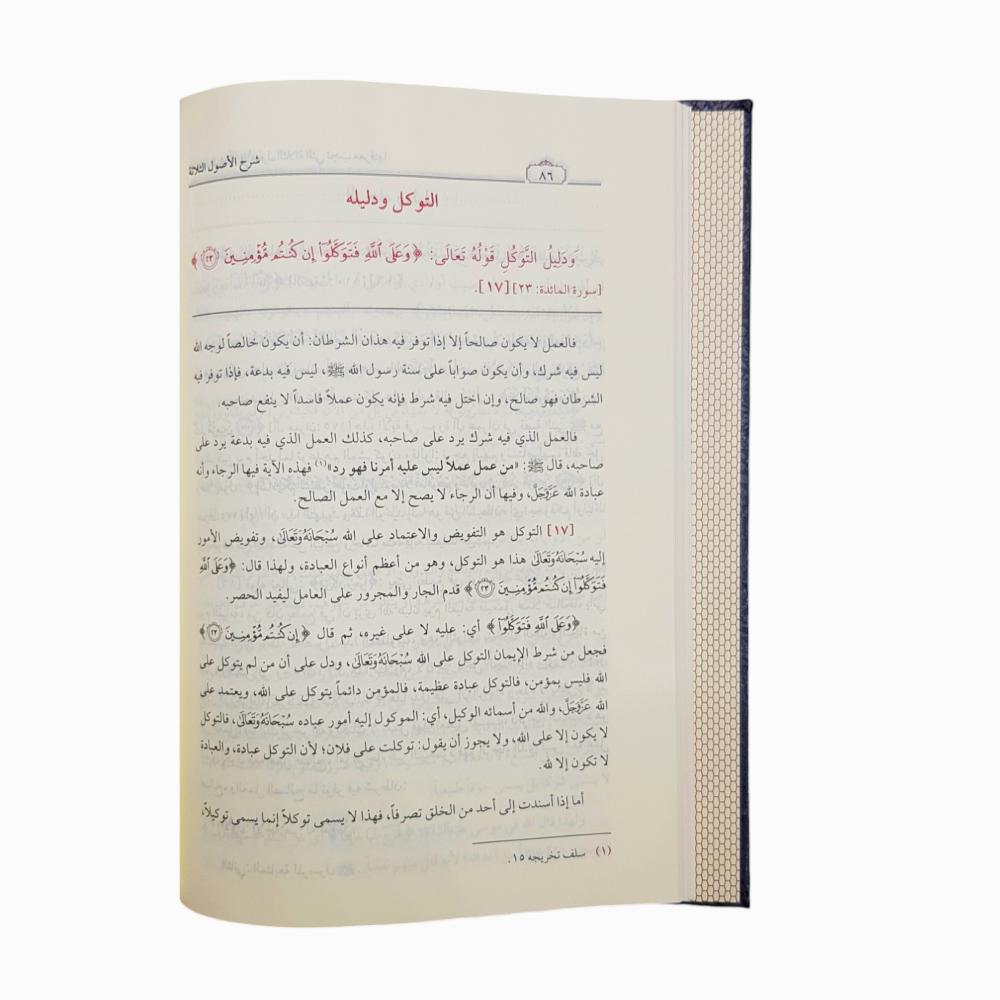 شرح الأصول الثلاثة
٨٦
التوكل ودليله
وَدَلِيلُ التَّوَكُّلِ قَوْلُهُ تَعَالَى: ﴿وَعَلَى ٱللَّهِ فَتَوَكَّلُوٓاْ إِن كُنتُم مُّؤْمِنِينَ ٢٣﴾
[سورة المائدة: ٢٣] [١٧].
فالعمل لا يكون صالحاً إلا إذا توفر فيه هذان الشرطان: أن يكون خالصاً لوجه الله
ليس فيه شرك، وأن يكون صواباً على سنة رسول الله ﷺ، ليس فيه بدعة، فإذا توفر فيه
الشرطان فهو صالح، وإن اختل فيه شرط فإنه يكون عملاً فاسداً لا ينفع صاحبه.
فالعمل الذي فيه شرك يرد على صاحبه، كذلك العمل الذي فيه بدعة يرد على
صاحبه، قال ﷺ: «من عمل عملاً ليس عليه أمرنا فهو رد»(١) فهذه الآية فيها الرجاء وأنه
عبادة الله عَزَّوَجَلَّ، وفيها أن الرجاء لا يصح إلا مع العمل الصالح.
[١٧] التوكل هو التفويض والاعتماد على الله سُبْحَانَهُ وَتَعَالَى، وتفويض الأمور
إليه سُبْحَانَهُ وَتَعَالَى هذا هو التوكل، وهو من أعظم أنواع العبادة، ولهذا قال: ﴿وَعَلَى ٱللَّهِ
فَتَوَكَّلُوٓاْ إِن كُنتُم مُّؤْمِنِينَ ٢٣﴾ قدم الجار والمجرور على العامل ليفيد الحصر.
﴿وَعَلَى ٱللَّهِ فَتَوَكَّلُوٓاْ﴾ أي: عليه لا على غيره، ثم قال ﴿إِن كُنتُم مُّؤْمِنِينَ ٢٣﴾
فجعل من شرط الإيمان التوكل على الله سُبْحَانَهُ وَتَعَالَى، ودل على أن من لم يتوكل على
الله فليس بمؤمن، فالتوكل عبادة عظيمة، فالمؤمن دائماً يتوكل على الله، ويعتمد على
الله عَزَّوَجَلَّ، والله من أسمائه الوكيل، أي: الموكول إليه أمور عباده سُبْحَانَهُ وَتَعَالَى، فالتوكل
لا يكون إلا على الله، ولا يجوز أن يقول: توكلت على فلان؛ لأن التوكل عبادة، والعبادة
لا تكون إلا لله.
أما إذا أسندت إلى أحد من الخلق تصرفاً، فهذا لا يسمى توكلاً إنما يسمى توكيلاً،
(١) سلف تخريجه ١٥.